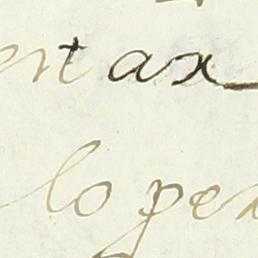 entax
lo pex